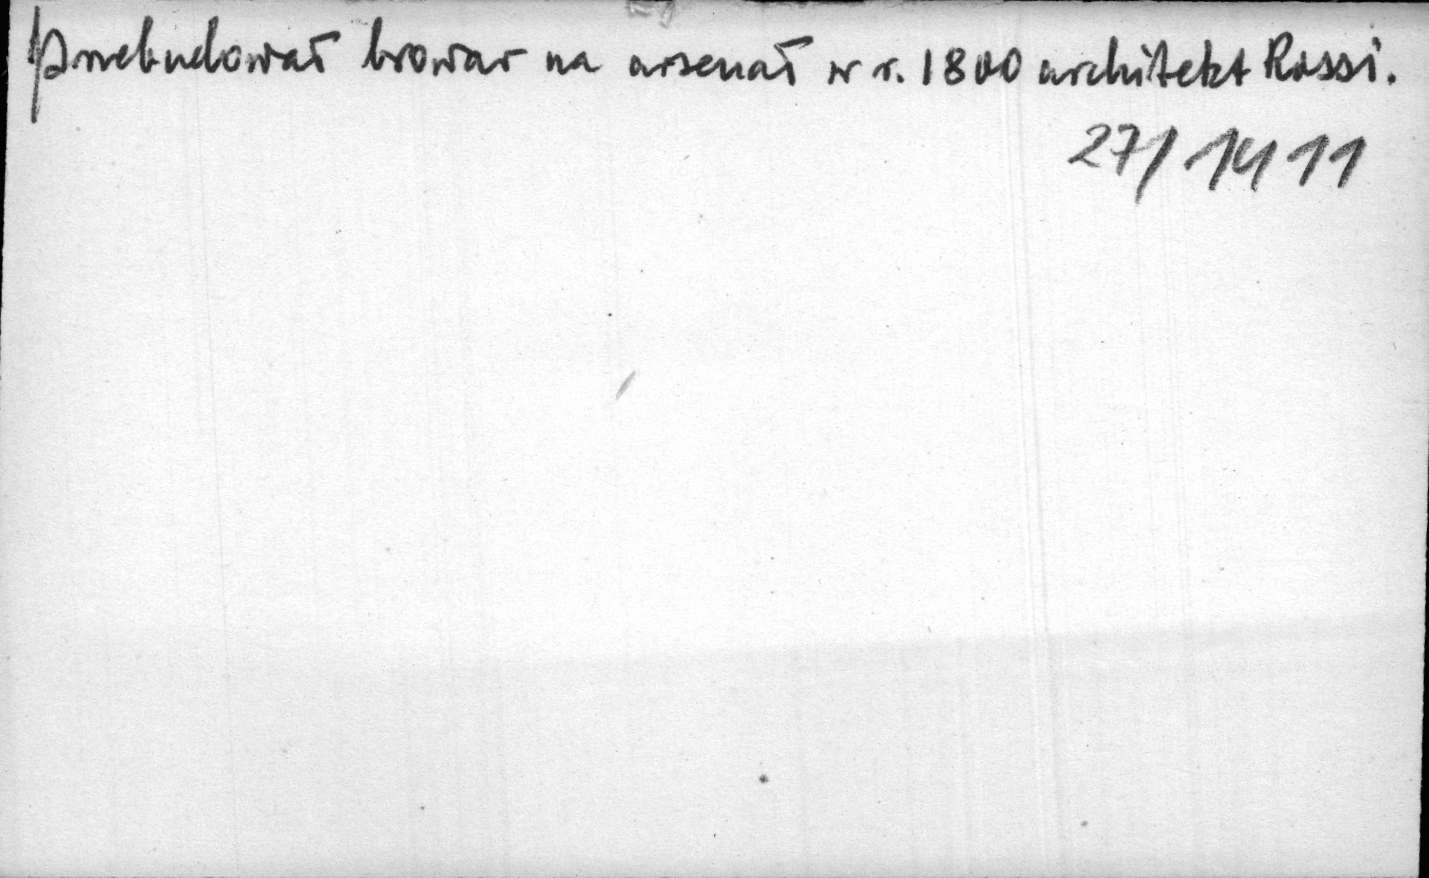 przebudował browar na arsenał w r. 1800 architekt Rossi.
27/1411